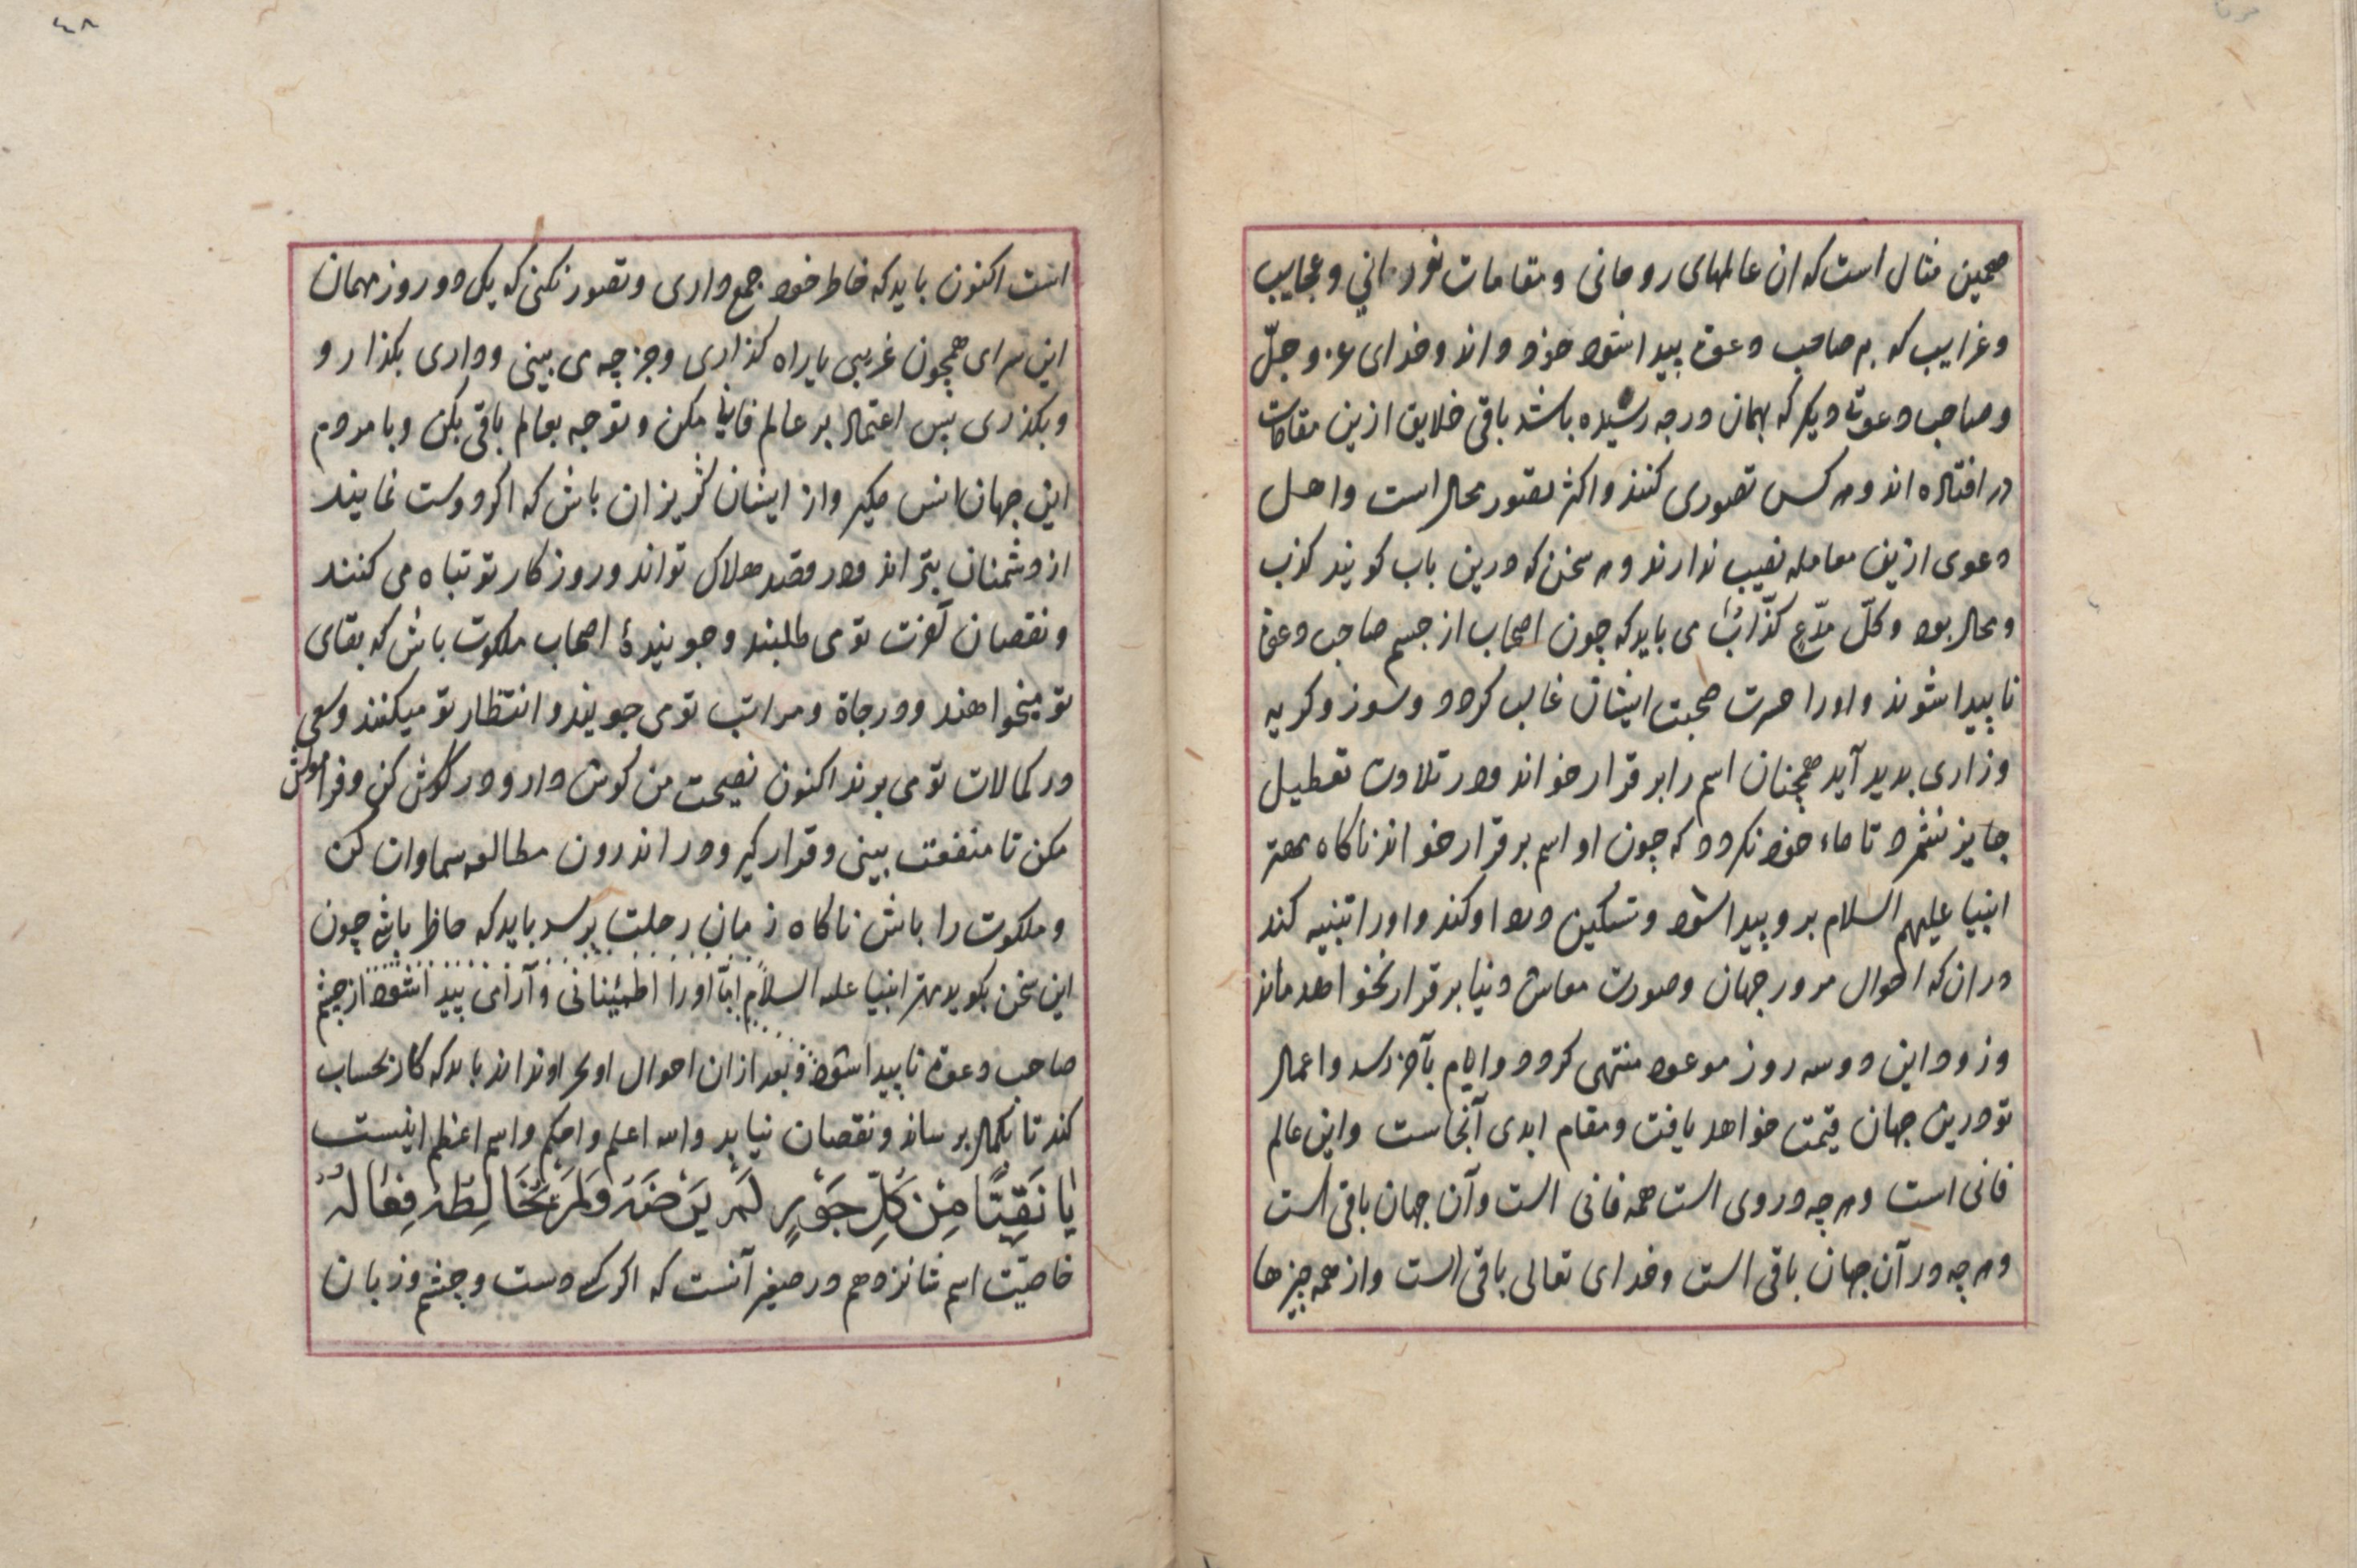 همچنین مثال است که ان عالمهای روحانی و مقامات نورانی و عجایب
وغرایب که بر صاحب دعوة پیدا شود خود داند و خدای عز و جلّ
و صاحب دعوتی دیکر که بهمان درجه رسیده باشد باقی خلایق ازین مقامات
در افتاده اند و هر کس تصوری کنند و اکثر تصور محال است و اهل
دعوی ازین معامله نصیب ندارند و هر سخن که درین باب کویند کذب
و محال بود و کلّ مدّعٍ کذّابٌ می باید که چون اصحاب از چشم صاحب دعوة
ناپیدا شوند و اورا حسرت صحبت ایشان غالب کردد و سوز و کریه
وزاری بدید آید همچنان اسم را بر قرار خواند و در تلاوت تعطیل
جایز نشمرد تا خود نکردد که چون او اسم بر قرار خواند ناکاه مهتر
انبیا علیهم السلام برو پیدا شود و تسکین دل او کند و اورا تنبیه کند
در ان که احوال مرور جهان و صورت معاش دنیا بر قرار نخواهد ماند
وزود این دو سه روز موعود منتهی کردد و ایام بآخر رسد و اعمال
تو درین جهان قیمت خواهد یافت و مقام ابدی آنجاست و این عالم
فانی است و هر چه در وی است همه فانی است و آن جهان باقی است
و هر چه در آن جهان باقی است و خدای تعالی باقی است و از همه چیزها
٤٨
است اکنون باید که خاطر خود جمع داری و تصور نکنی که یک دو روز مهمان
این سرای همچون غریبی یا راه کذاری و جز چه می بینی و داری بکذار و
و بکذری پس اعتماد بر عالم فانی مکن و توجه بعالم باقی بکن و با مردم
این جهان انس مکیر و از ایشان کریزان باش که اکر دوست نمایند
از دشمنان بتر اند و در قصد هلاک تواند و روزکار تو تباه می کنند
و نقصان آخرت تو می طلبند و جویندهٔ اصحاب ملکوت باش که بقای
تو میخواهند و درجاة و مراتب تو می جویند و انتظار تو میکنند و سعی
در کمالات تو می برند اکنون نصیحت من کوش دار و در کوش کن و فراموش
مکن تا منفعت بینی و قرار کیر و در اندرون مطالعه سماوات کن
و ملکوت را باش ناکاه زمان رحلت برسد باید که حاضر باشی چون
این سخن بکوید مهتر انبیا علیه السلام امّا اورا اطمینانی و آرامی پیدا شود از چشم
صاحب دعوة ناپیدا شود و بعد ازان احوال او بحر اوند اند باید که کار بحساب
کند تا بکمال برساند و نقصان نیابد والله اعلم و احکم و اسم اعظم اینست
یَا نَقِیًّا مِنْ کُلِّ جَوْرٍ لَمْ یَرْضَهُ وَلَمْ یُخَالِطْهُ فِعَالُهُ
خاصیّت اسم شانزدهم در صغیر آنست که اکر کسی دست و چشم و زبان